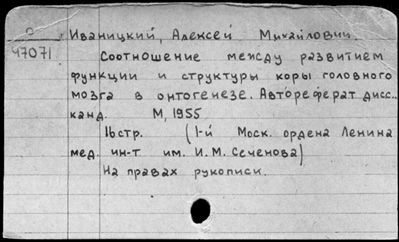 С
47071
Иваницкий, Алексей Михайлович.
Соотношение между развитием
функции и структуры коры головного
мозга в онтогенезе. Автореферат дисс..
канд. М, 1955
стр. (1-й Моск. ордена Ленина
мед. ин-т им. И.М. Сеченова)
На правах рукописи.